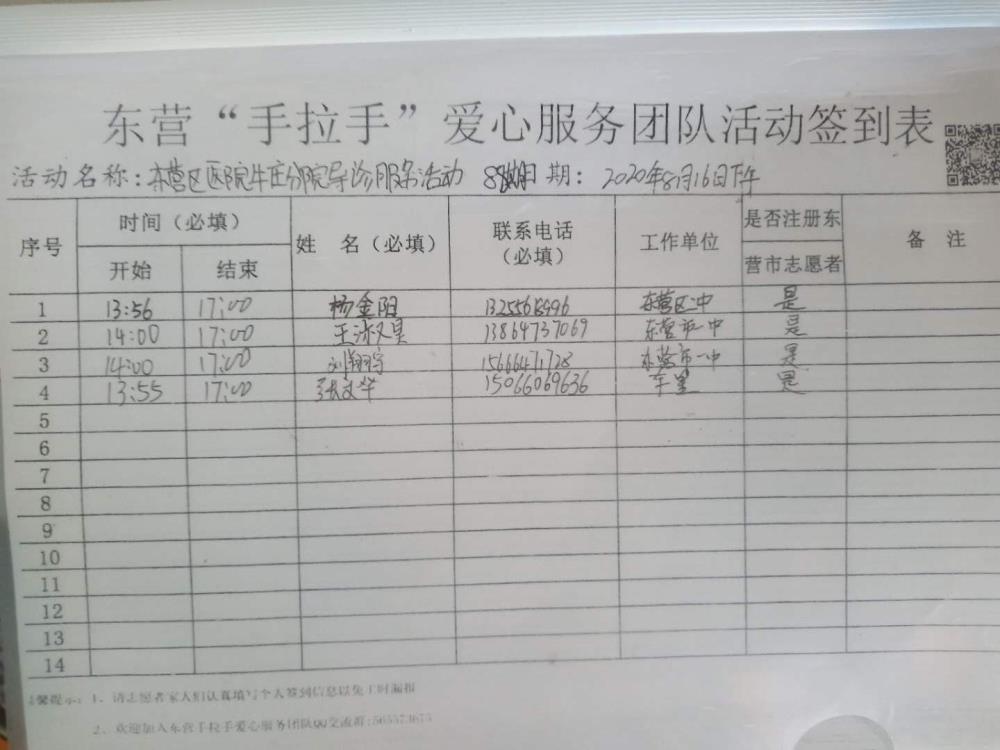 东营“手拉手”爱心服务团队活动签到表
活动名称：东营区医院牛庄分院导诊服务活动 日期：2020年8月16日下午
序号 时间（必填） 姓 名（必填） 联系电话（必填） 工作单位 是否注册东营市志愿者 备 注
开始 结束
1 13:56 17:00 杨金阳 东营区一中 是
2 14:00 17:00 13864737069 东营市一中 是
3 14:00 17:00 刘翔宇 15666471728 东营市一中 是
4 13:55 17:00 张文华 15066069636 是
5
6
7
8
9
10
11
12
13
14
馨提示：1、请志愿者家人们认真填写个人签到信息以免工时漏报
2、欢迎加入东营手拉手爱心服务团队QQ交流群: